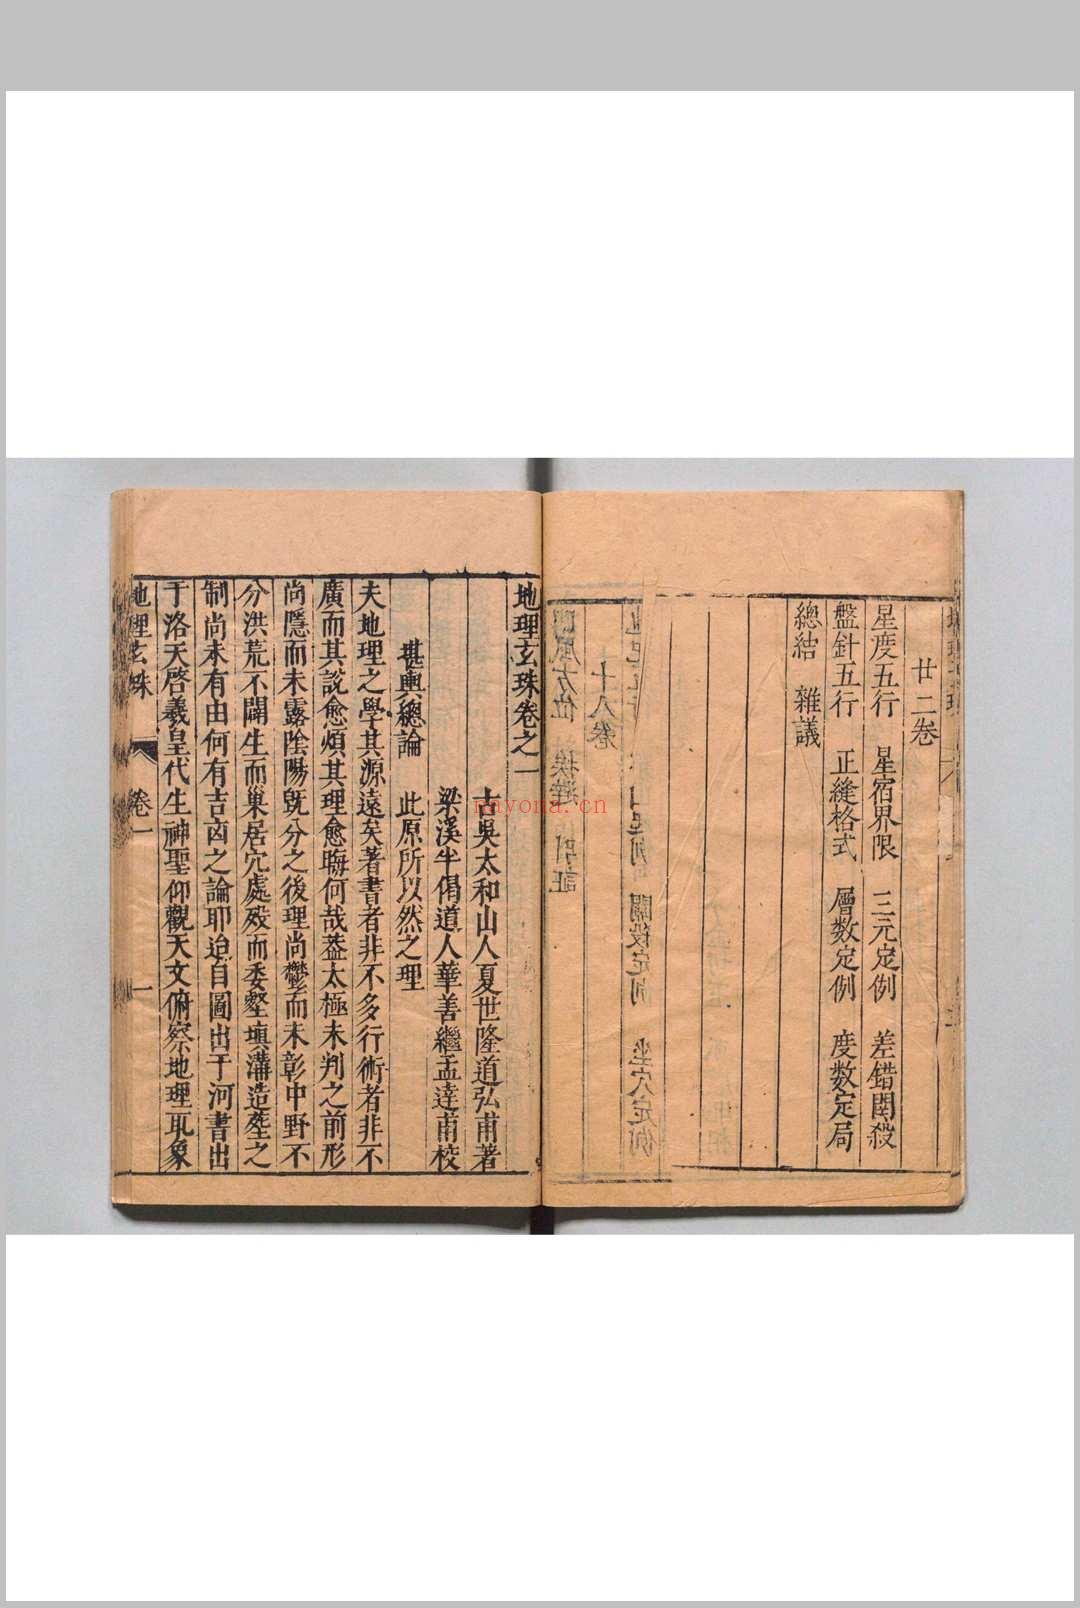 廿二卷
星度五行 星宿界限 三元定例 差錯關殺
盤針五行 正縫格式 層数定例 度数定局
總結 雜議
地理玄珠卷之一
古吳太和山人夏世隆道弘甫著
梁溪半偈道人華善繼孟達甫校
堪輿總論 此原所以然之理
夫地理之學其源遠矣著書者非不多行術者非不
廣而其說愈煩其理愈晦何哉葢太極未判之前形
尚隱而未露陰陽旣分之後理尚欝而未彰中野不
分洪荒不闢生而巢居穴處殁而委壑填溝造塟之
制尚未有由何有吉㐫之論耶迨自圖出于河書出
于洛天啓羲皇代生神聖仰觀天文俯察地理取象
地理玄珠 卷一 一
nayona.cn